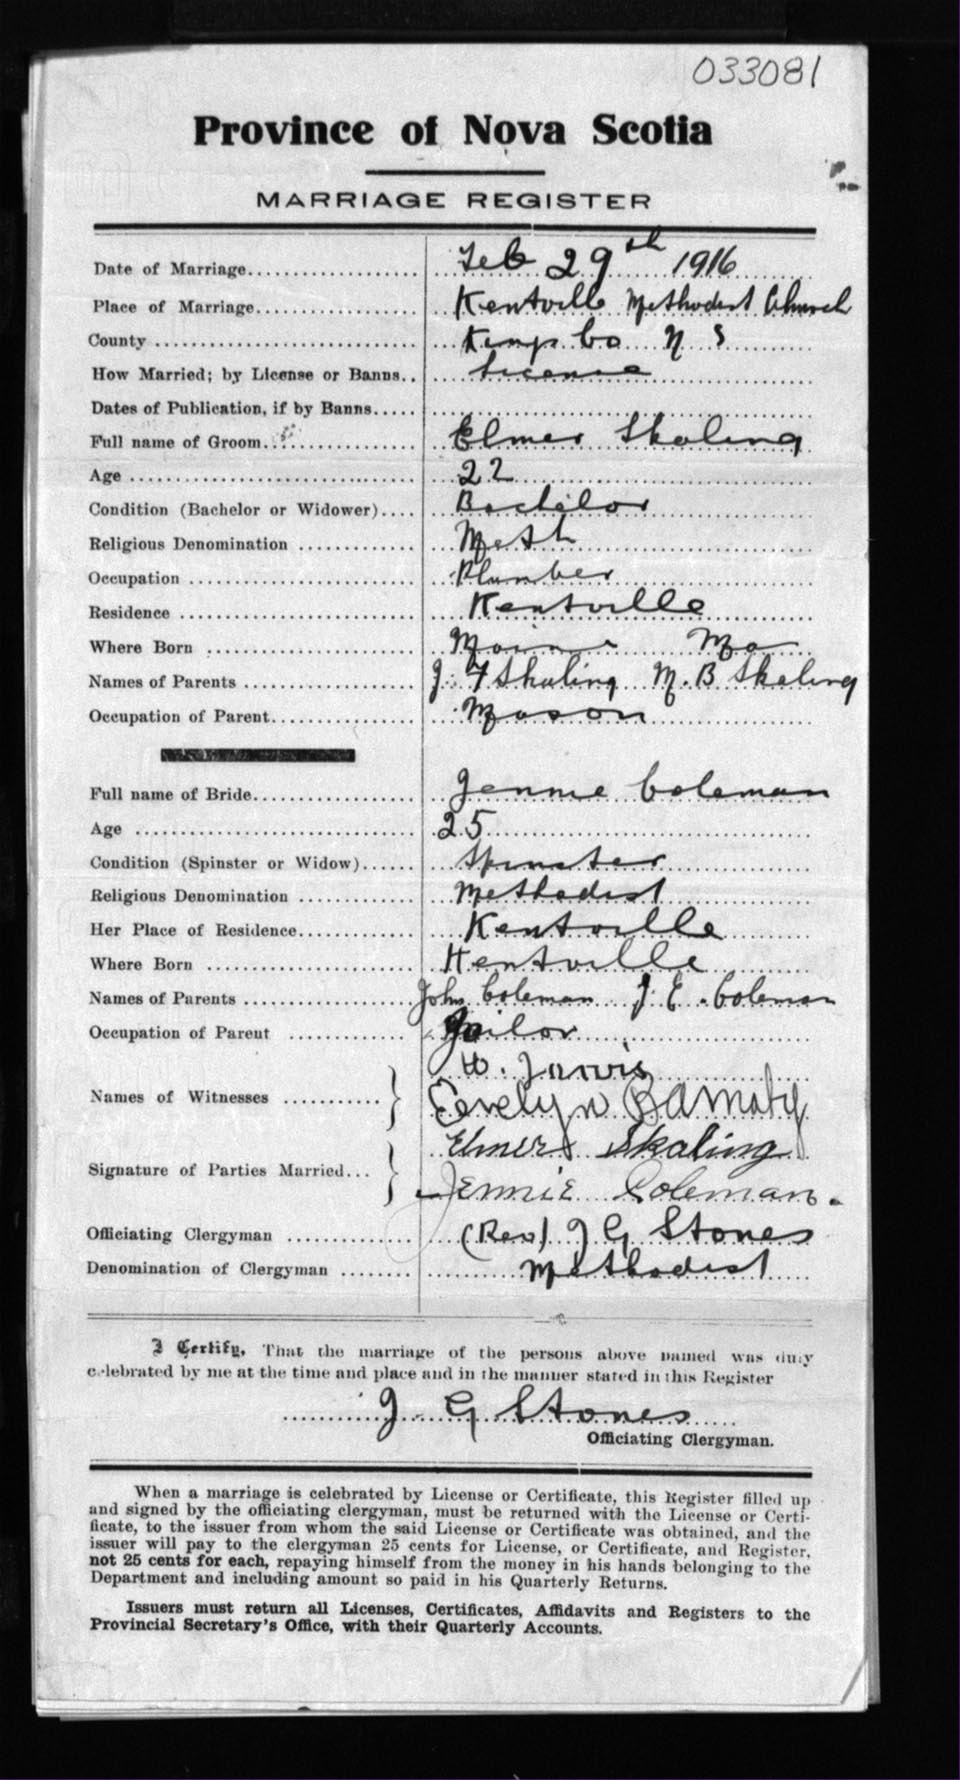 033081
Province of Nova Scotia
MARRIAGE REGISTER
Date of Marriage.................... Feb 29th 1916
Place of Marriage.................... Kentville Methodist Church
County .................... Kings Co N S
How Married; by License or Banns.. License
Dates of Publication, if by Banns.....
Full name of Groom.................... Elmer Skaling
Age .................... 22
Condition (Bachelor or Widower).... Bachelor
Religious Denomination .................... Meth
Occupation .................... Plumber
Residence .................... Kentville
Where Born .................... Maine
Names of Parents .................... J. F Skaling M. B Skaling
Occupation of Parent.................... Mason
Full name of Bride.................... Jennie Coleman
Age .................... 25
Condition (Spinster or Widow)...... Spinster
Religious Denomination .................... Methodist
Her Place of Residence.................... Kentville
Where Born .................... Kentville
Names of Parents .................... John Coleman J E. Coleman
Occupation of Parent .................... Jailor
W. Jarvis
Names of Witnesses ........... } Evelyn Barnaby
Elmer Skaling
Signature of Parties Married... } Jennie Coleman.
Officiating Clergyman .................... (Rev) J G Stones
Denomination of Clergyman ........ Methodist
I Certify, That the marriage of the persons above named was duly
celebrated by me at the time and place and in the manner stated in this Register
J G Stones
Officiating Clergyman.
When a marriage is celebrated by License or Certificate, this Register filled up
and signed by the officiating clergyman, must be returned with the License or Certi-
ficate, to the issuer from whom the said License or Certificate was obtained, and the
issuer will pay to the clergyman 25 cents for License, or Certificate, and Register,
not 25 cents for each, repaying himself from the money in his hands belonging to the
Department and including amount so paid in his Quarterly Returns.
Issuers must return all Licenses, Certificates, Affidavits and Registers to the
Provincial Secretary's Office, with their Quarterly Accounts.